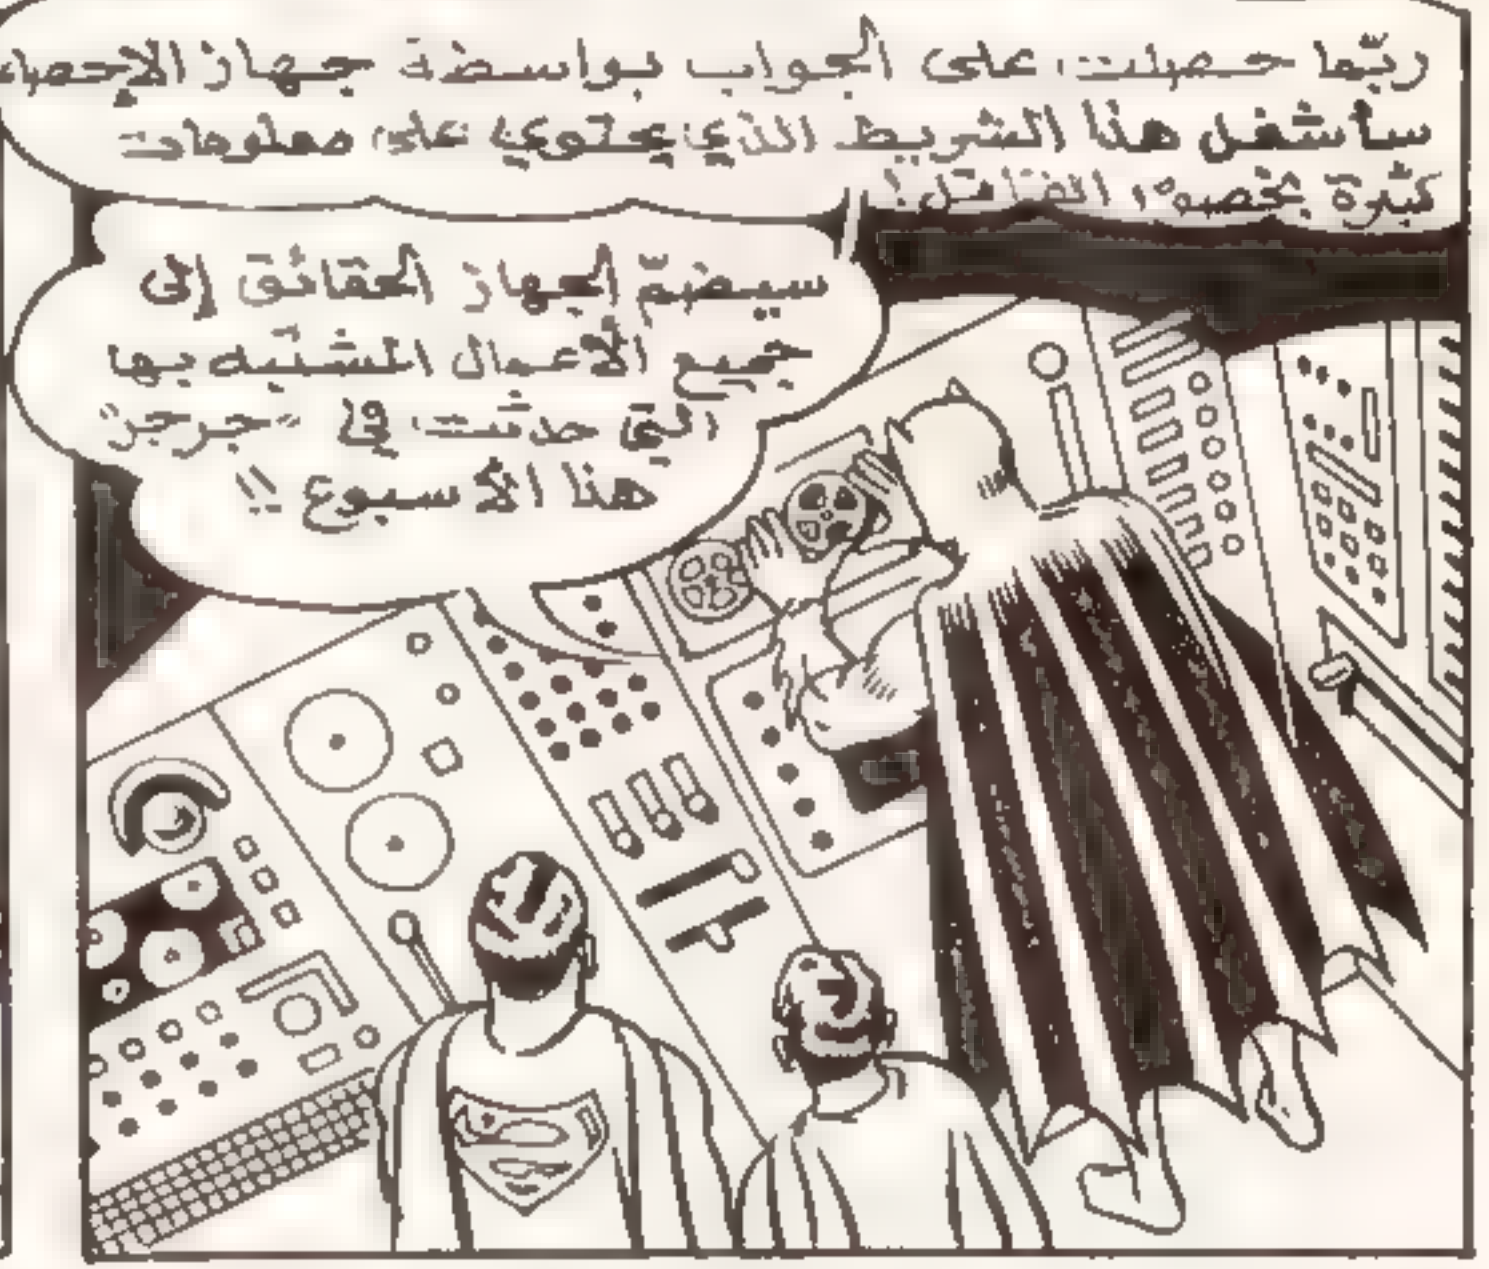 ربّما حصلت على الجواب بواسطة جهاز الإحصاء
سأشغل هذا الشريط الذي يحتوي على معلومات
كثيرة بخصوص القاتل!
سيضمّ الجهاز الحقائق إلى
جميع الأعمال المشتبه بها
التي حدثت في "جرجر"
هذا الأسبوع !!